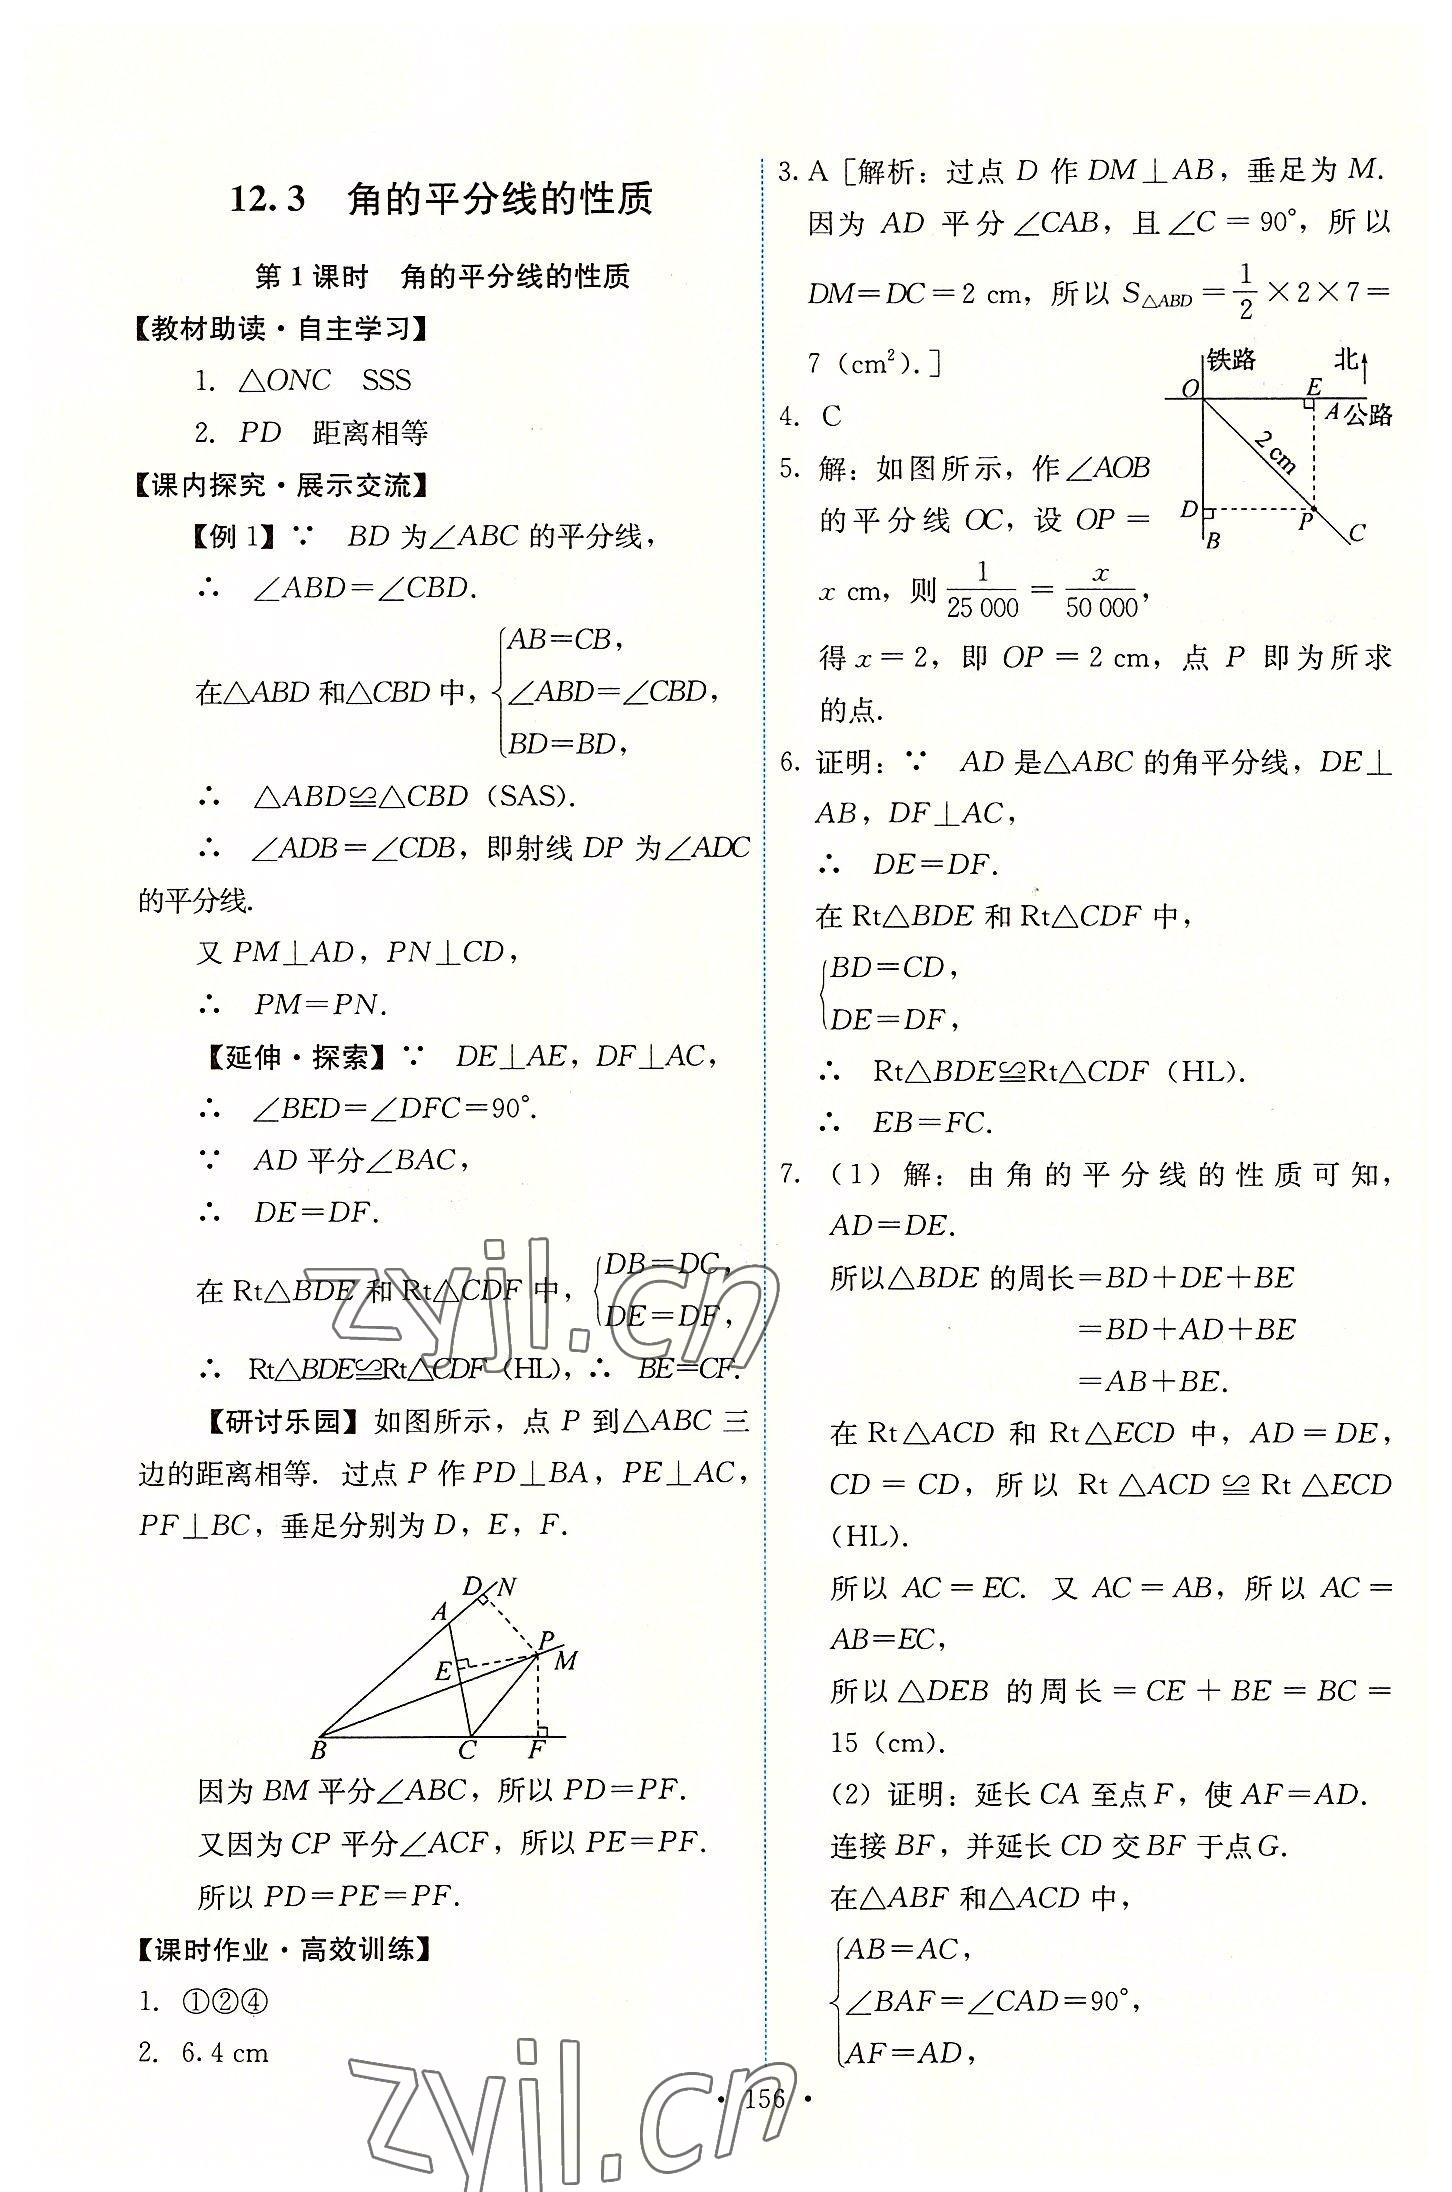 12.3 角的平分线的性质
第1课时 角的平分线的性质
【教材助读·自主学习】
1. △ONC SSS
2. PD 距离相等
【课内探究·展示交流】
【例1】∵ BD为∠ABC的平分线，
∴ ∠ABD=∠CBD.
AB=CB，
在△ABD和△CBD中，{∠ABD=∠CBD，
BD=BD，
∴ △ABD≌△CBD（SAS）.
∴ ∠ADB=∠CDB，即射线DP为∠ADC
的平分线.
又PM⊥AD，PN⊥CD，
∴ PM=PN.
【延伸·探索】∵ DE⊥AE，DF⊥AC，
∴ ∠BED=∠DFC=90°.
∵ AD平分∠BAC，
∴ DE=DF.
在Rt△BDE和Rt△CDF中，{DB=DC，
DE=DF，
∴ Rt△BDE≌Rt△CDF（HL），∴ BE=CF.
【研讨乐园】如图所示，点P到△ABC三
边的距离相等. 过点P作PD⊥BA，PE⊥AC，
PF⊥BC，垂足分别为D，E，F.
D N
A
P
E M
B C F
因为BM平分∠ABC，所以PD=PF.
又因为CP平分∠ACF，所以PE=PF.
所以PD=PE=PF.
【课时作业·高效训练】
1. ①②④
2. 6.4 cm
3. A［解析：过点D作DM⊥AB，垂足为M.
因为AD平分∠CAB，且∠C=90°，所以
DM=DC=2 cm，所以S△ABD=1/2×2×7=
7（cm²）.］
铁路 北
O E
A 公路
2 cm
D P C
B
4. C
5. 解：如图所示，作∠AOB
的平分线OC，设OP=
x cm，则1/25 000=x/50 000，
得x=2，即OP=2 cm，点P即为所求
的点.
6. 证明：∵ AD是△ABC的角平分线，DE⊥
AB，DF⊥AC，
∴ DE=DF.
在Rt△BDE和Rt△CDF中，
{BD=CD，
DE=DF，
∴ Rt△BDE≌Rt△CDF（HL）.
∴ EB=FC.
7.（1）解：由角的平分线的性质可知，
AD=DE.
所以△BDE的周长=BD+DE+BE
=BD+AD+BE
=AB+BE.
在Rt△ACD和Rt△ECD中，AD=DE，
CD=CD，所以Rt△ACD≌Rt△ECD
（HL）.
所以AC=EC. 又AC=AB，所以AC=
AB=EC，
所以△DEB的周长=CE+BE=BC=
15（cm）.
（2）证明：延长CA至点F，使AF=AD.
连接BF，并延长CD交BF于点G.
在△ABF和△ACD中，
AB=AC，
{∠BAF=∠CAD=90°，
AF=AD，
· 156 ·
zyjl.cn
zyjl.cn